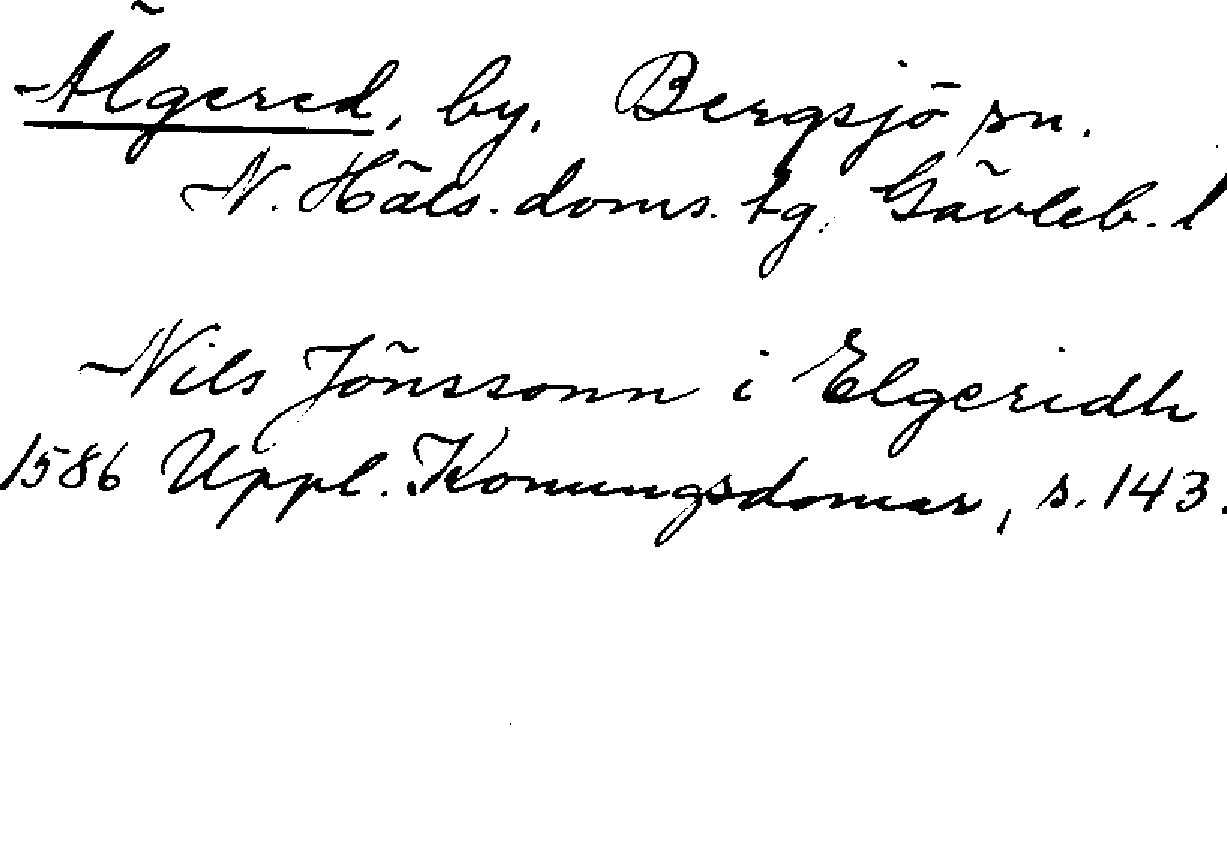 Älgered, by, Bergsjö sn.
N. Häls. doms. tg, Gävleb. l
Nils Jönssonn i Elgeridh
1586 Uppl. Konungsdomar, s. 143.